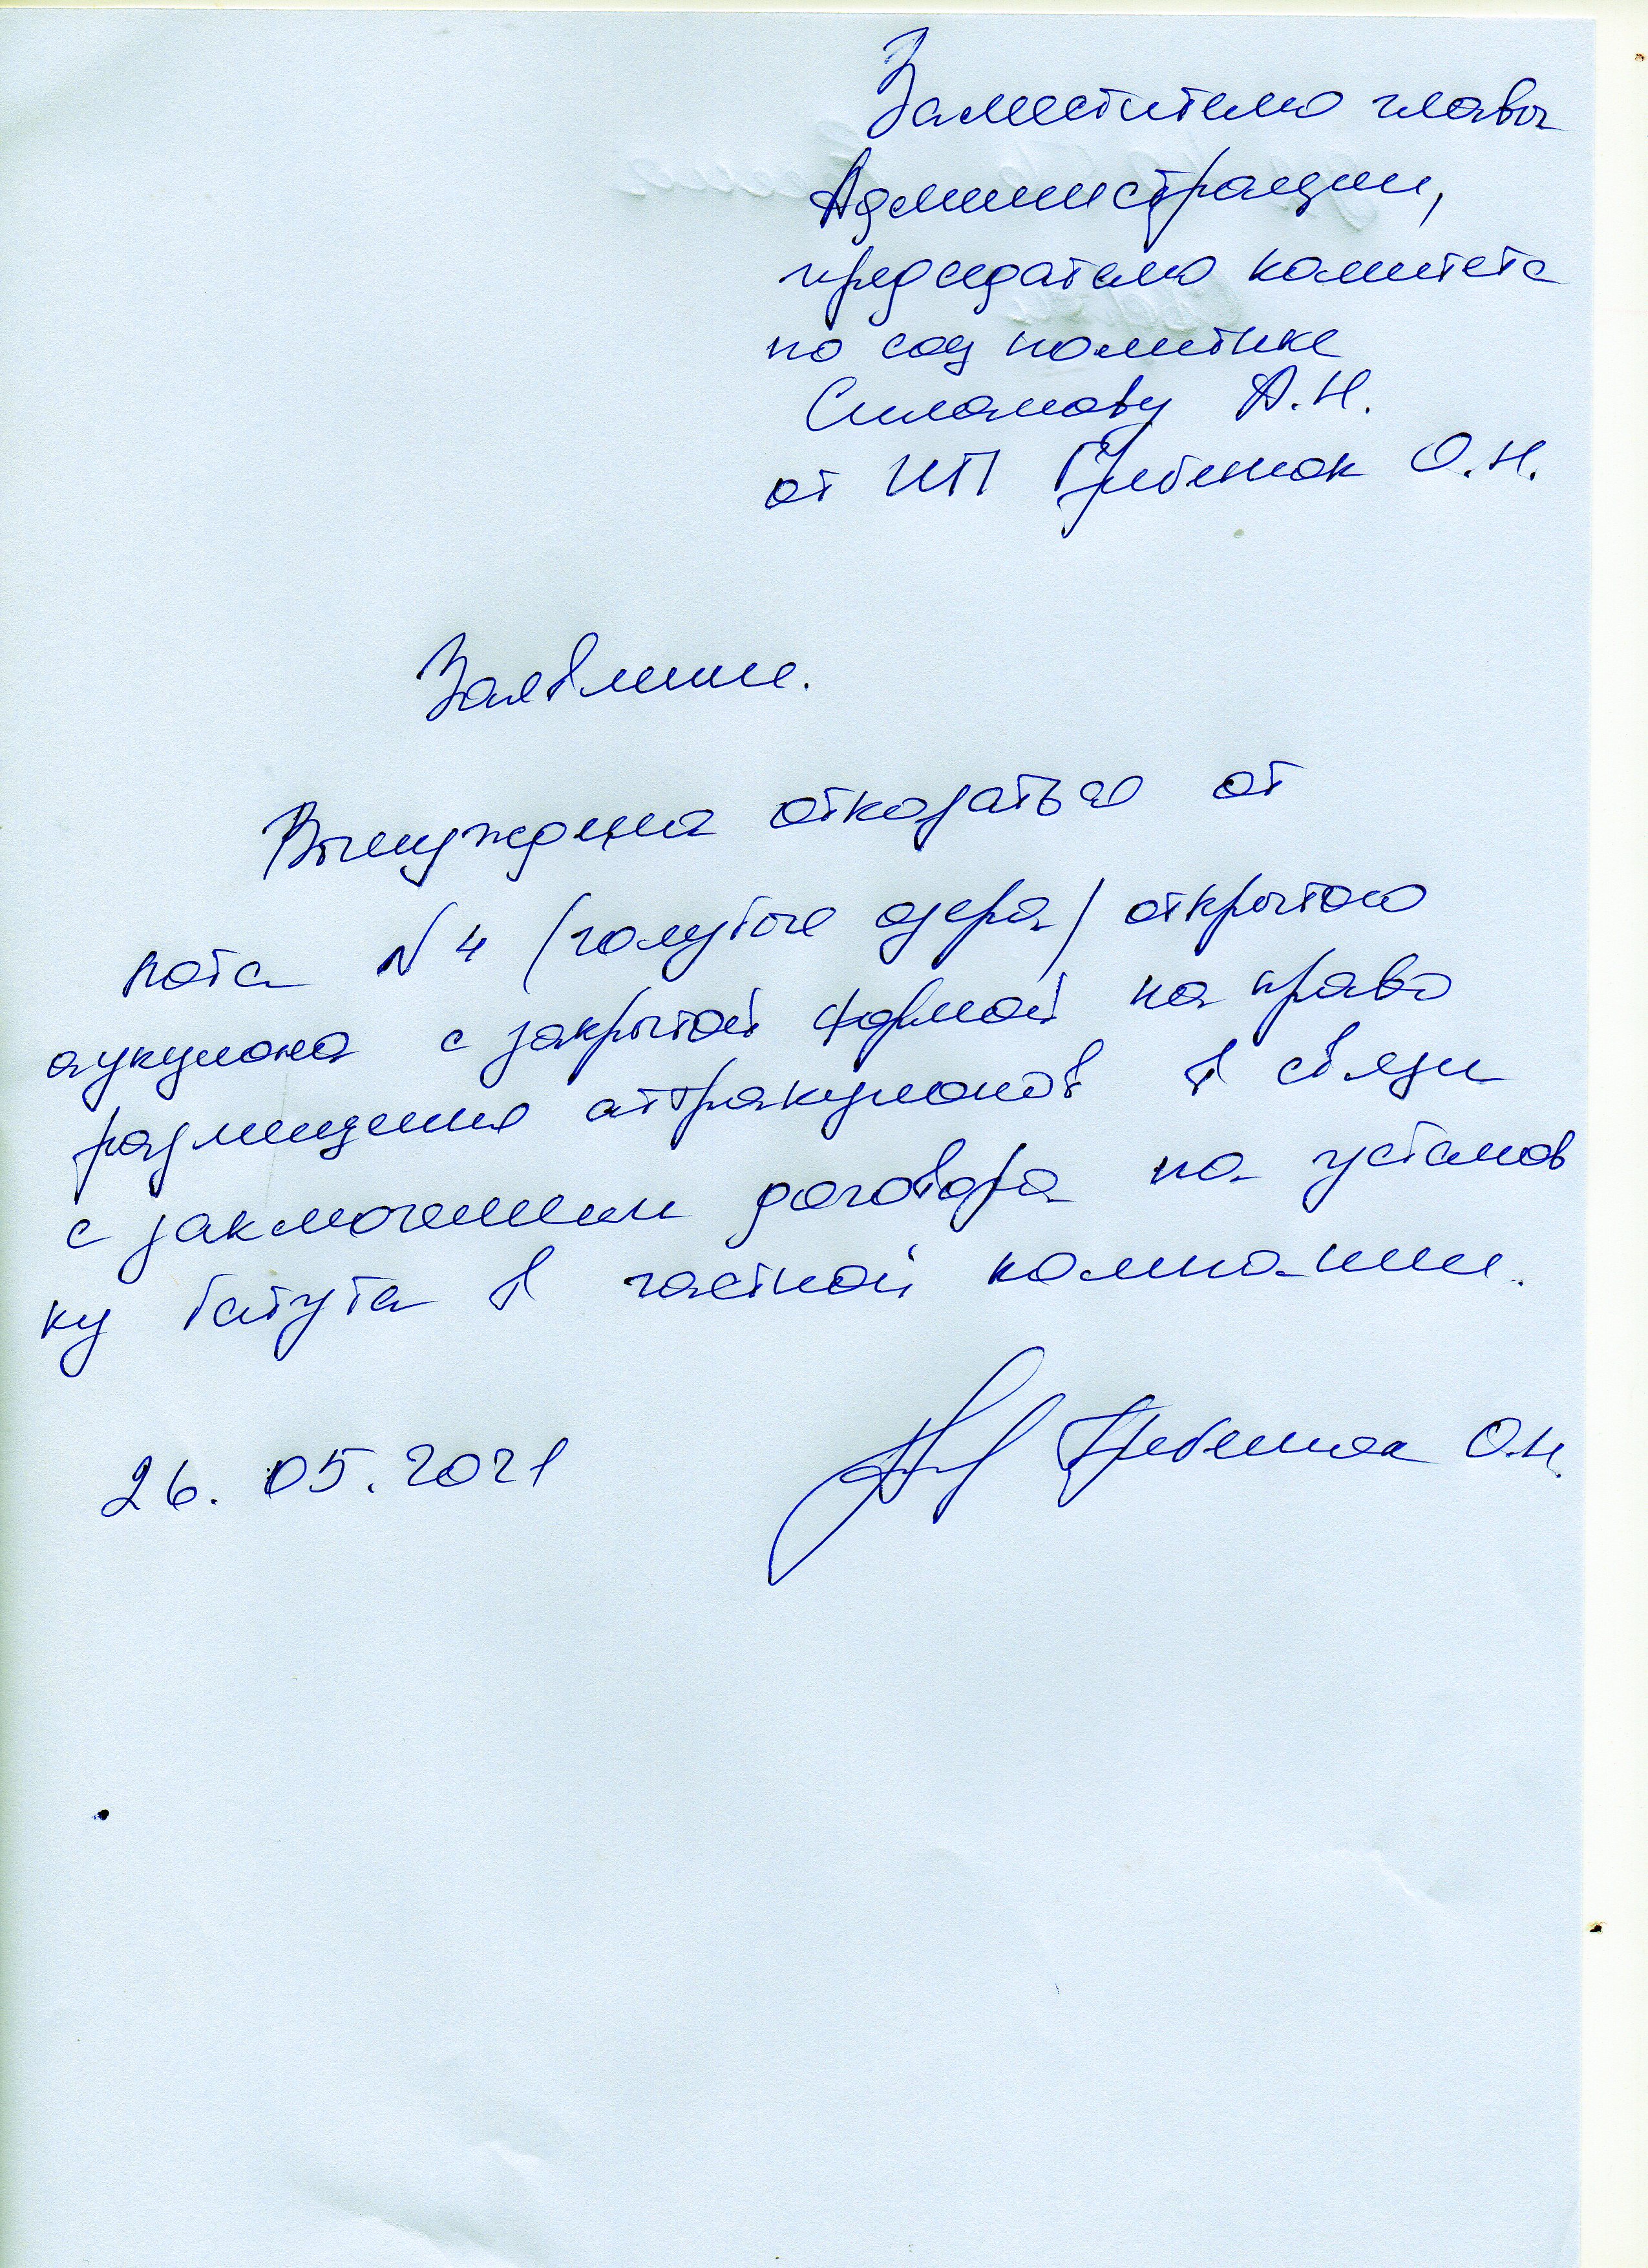 Заместителю главы
Администрации,
председателю комитета
по соц политике
Силамову А.Н.
от ИП Гребенюк О.Н.
Заявление.
Вынуждена отказаться от
лота N 4 (голубые озера) открытого
аукциона с закрытой формой на право
размещения аттракционов в связи
с заключением договора на установ
ку батута в частной компании.
26.05.2021 Гребенюк О.Н.